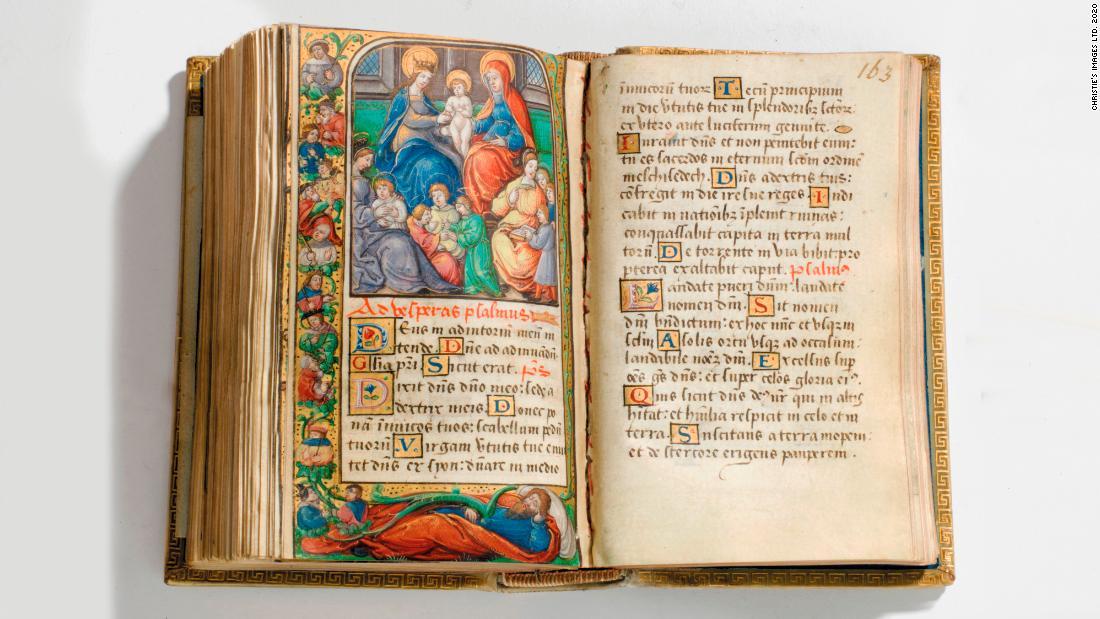 Ad vesperas psalmus
Deus in adiutoriū meū in
tende. Dñe ad adiuuādū
Glīa pr̄i. Sicut erat. p̄s
Dixit dn̄s dn̄o meo: sede a
dextris meis. Donec po
nā inimicos tuos: scabellum pedū
tuorū. Virgam vtutis tue emi
tet dn̄s ex syon: dn̄are in medio
163
inimicorū tuoꝝ Tecū principium
in die vtutis tue in splendoribꝫ sc̄toꝝ
ex vtero ante luciferum genui te.
Iurauit dn̄s et non penitebit eum:
tu es sacerdos in eternum scd̄m ordinē
melchisedech. Dn̄s a dextris tuis:
cōfregit in die ire sue reges. Iudi
cabit in nationibꝫ īplebit ruinas:
conquassabit capita in terra mul
torū. De torrente in via bibit: pro
pterea exaltabit caput. psalmus
Laudate pueri dn̄m: laudate
nomen dn̄i. Sit nomen
dn̄i bn̄dictum: ex hoc nūc et vsqꝫ in
sc̄lm A solis ortu vsqꝫ ad occasum:
laudabile nomē dn̄i. Excelsus sup̄
oēs gē̄s dn̄s: et super celos gloria eiꝰ.
Quis sicut dn̄s deꝰ nr̄ qui in altis
hītat: et hūilia respicit in celo et in
terra. Suscitans a terra inopem:
et de stercore erigens pauperem.
CHRISTIE'S IMAGES LTD. 2020